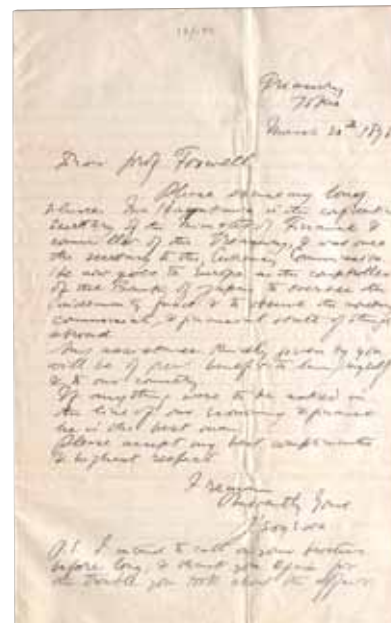 Treasury
Tokio
March 20th 189
Dear Prof Foxwell
Please excuse my long
silence. Mr is the
Secretary of the Minister of Finance &
councillor of the Treasury, & was one
the secretary to the Currency Commission
He now goes to Europe as the controller
of the Bank of Japan to oversee the
indemnity fund & to observe the
commercial, & financial state of things
abroad
Any assistance kindly given by you
will be of great benefit to him
& to our country
If anything were to be asked in
the line of our economy & finance
he is the best man
Please accept my best compliments
& highest respect
I remain
Yours
P.S. I intend to call on your brother
before long, & thank you again for
the trouble you took about the affair